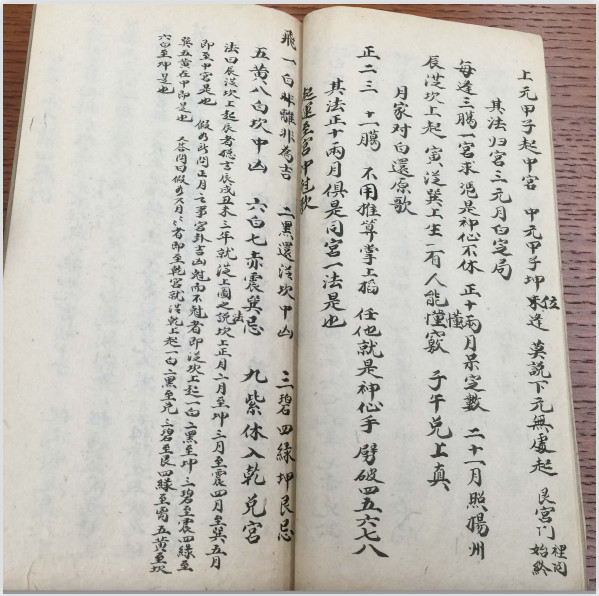 上元甲子起中宮 中元甲子坤位求逢 莫說下元無處起 艮宮門裡問始終
其法归宮三元月白定局
每逢三騰一宮求 便是神仙不休 正十兩月呆定數 二十一月照揚州
辰從坎上起 寅從巽上生 有人能懂竅 子午兌上真
月家对白還原歌
正二三 十一騰 不用推算掌上搯 任他就是神仙手 劈破四五六七八
其法正十兩月俱是同宮一法是也
起運至宮中
飛一白 離非為吉 二黑還從坎中山 三碧四綠坤艮忌
五黃八白坎中山 六白七赤震巽忌 九紫休入乾兌宮
法曰辰從坎上起辰者總言辰戌丑未三年就從上圖之說法坎上正月二月至坤 三月至震四月至巽五月
即至中宮是也 假如所問正月之事宮卦吉凶 而不 者即從坎上起一白 二黑至坤 三碧至震四綠至
巽五黃在中即是也 又答問曰假如 月 者即至乾宮就從乾上起一白 二黑至兌 三碧至艮四綠至离五黃至坎
六白至坤是也